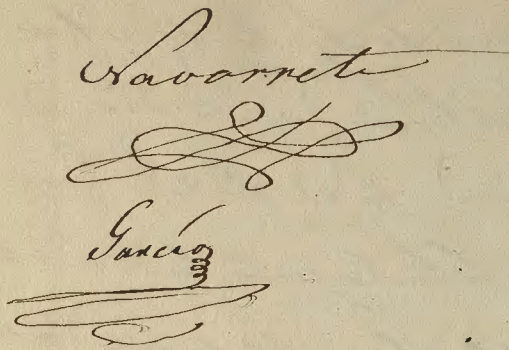 Navarrete
García